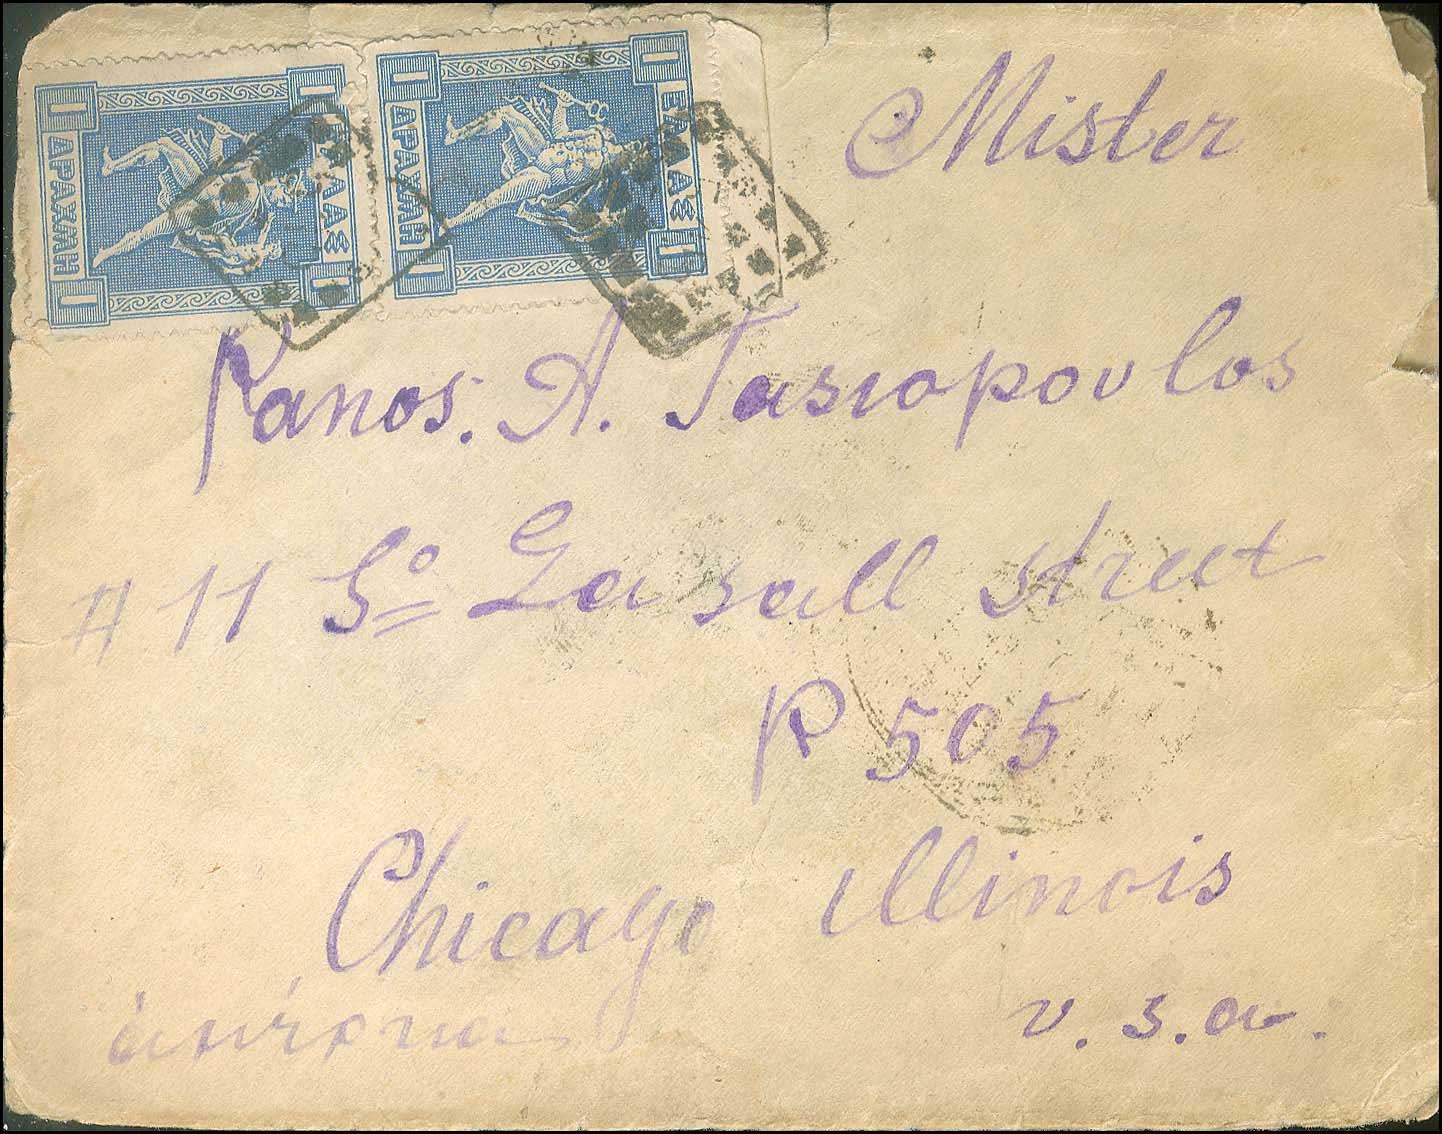 1 ΕΛΛΑΣ 1
1 ΔΡΑΧΜΗ 1
1 ΕΛΛΑΣ 1
1 ΔΡΑΧΜΗ 1
Mister
Panos. A. Tasiopoulos
# 11 So La sall street
P 505
Chicago illinois
U. S. a.